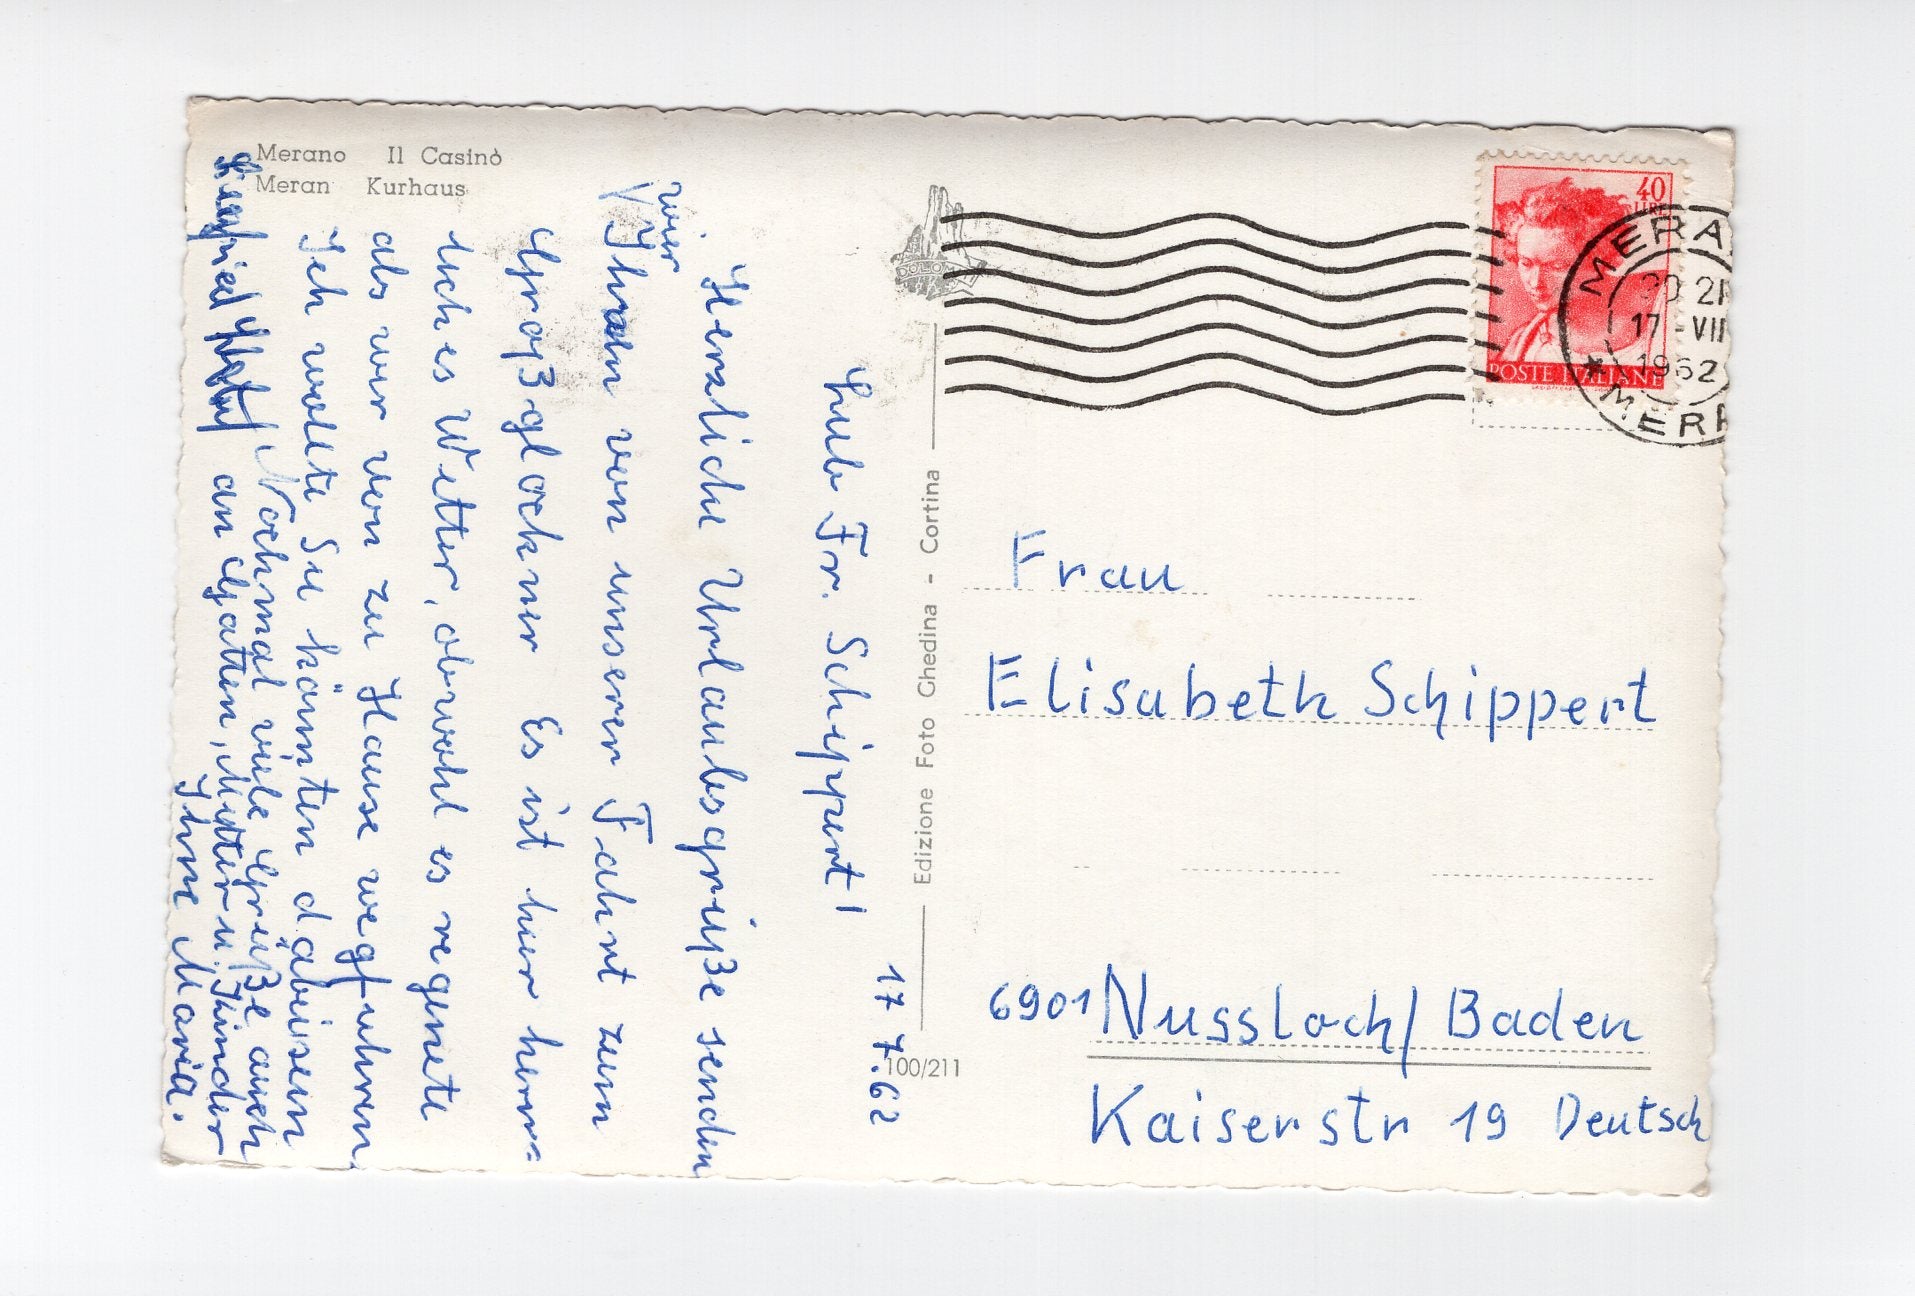 Merano Il Casinò
Meran Kurhaus
17 7.62
Liebe Fr. Schippert!
Herzliche Urlaubsgrüße senden
wir
Ihnen von unserer Fahrt zum
Großglockner Es ist hier herr=
liches Wetter, obwohl es regnete
als wir von zu Hause wegfuhren.
Ich wollte Sie könnten dabeisein
Nochmal viele Grüße auch
an Gatten, Mutter u. Kinder
Ihre Maria.
DOLOMITI
Edizione Foto Ghedina - Cortina
100/211
40
LIRE
POSTE ITALIANE
MERA
20 21
17 - VII
1962
* MERA
Frau
Elisabeth Schippert
6901 Nussloch/Baden
Kaiserstr 19 Deutsch